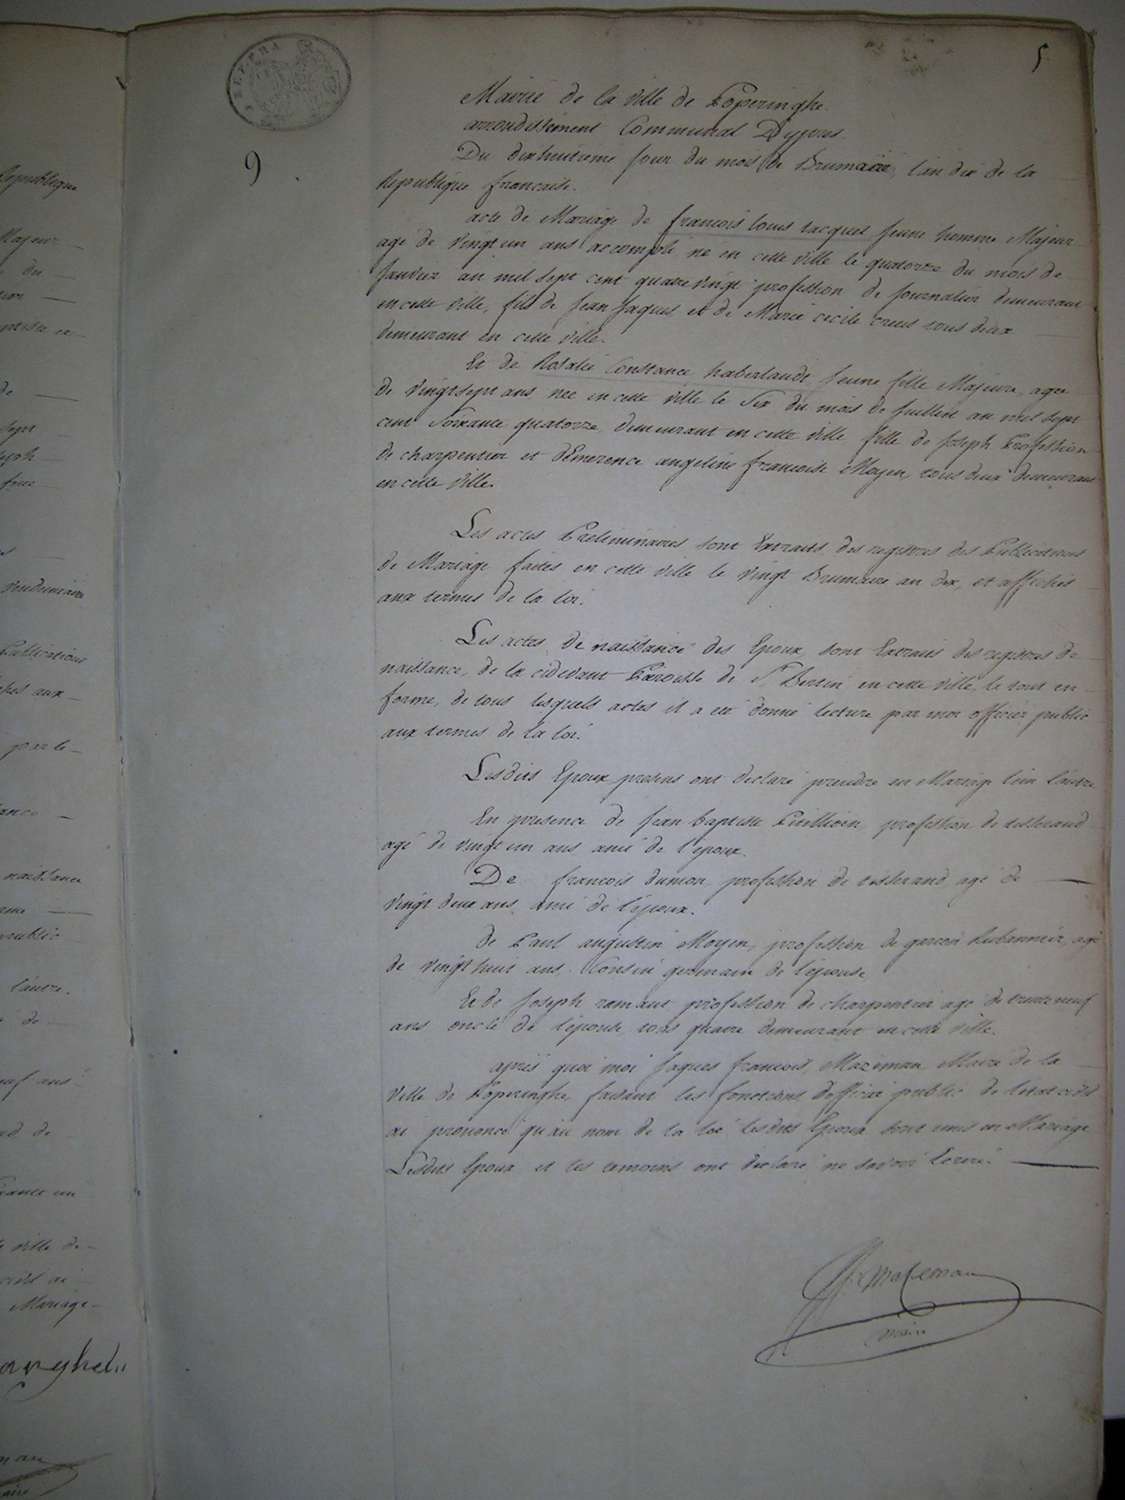 5
9
Mairie de la Ville de Poperinghe
arrondissement Communal Dypres
Du dixhuitieme jour du mois de Brumaire, l'an dix de la
Republique francaise.
acte de Mariage de francois louis Jacques jeune homme Majeur
agé de vingt un ans accompli né en cette ville le quatorze du mois de
Janvier an mil sept cent quatre vingt profession de Journalier demeurant
en cette ville, fils de Jean Jaques et de Marie cecile tous deux
demeurant en cette ville.
Et de Rosalie Constance haberlandt jeune fille Majeure, agée
de vingt sept ans née en cette ville le Six du mois de Juillet an mil sept
cent Soixante quatorze demeurant en cette ville fille de Joseph Profession
de charpentier et angeline francoise Moyen, tous deux demeurant
en cette ville.
Les actes Preliminaires sont Extraits des registres des Publications
de Mariage faites en cette ville le vingt Brumaire an dix, et affichés
aux termes de la loi.
Les actes de naissance des Epoux sont Extraits des registres de
naissance, de la cidevant Paroisse de St Bertin en cette ville, le tout en
forme, de tous lesquels actes il a été donné lecture par moi officier public
aux termes de la loi.
Lesdits Epoux presens ont declaré prendre en Mariage l'un l'autre
En presence de Jean baptiste profession de tisserand
agé de vingt un ans ami de l'epoux.
De francois dumon profession de tisserand, agé de
vingt deux ans, ami de l'epoux.
de Paul augustin Moyen, profession de garcon Rubannier, agé
de vingt huit ans Cousin germain de l'epouse
Et de Joseph romaut profession de charpentier agé de trente neuf
ans oncle de l'epouse tous quatre demeurant en cette ville.
après quoi moi Jaques francois Mazeman Maire de la
Ville de Poperinghe faisant les fonctions d'officier public de l'etat civil
ai prononcé qu'au nom de la loi lesdits Epoux sont unis en Mariage
Lesdits Epoux et les temoins ont declaré ne savoir Ecrire.
Mazeman
maire